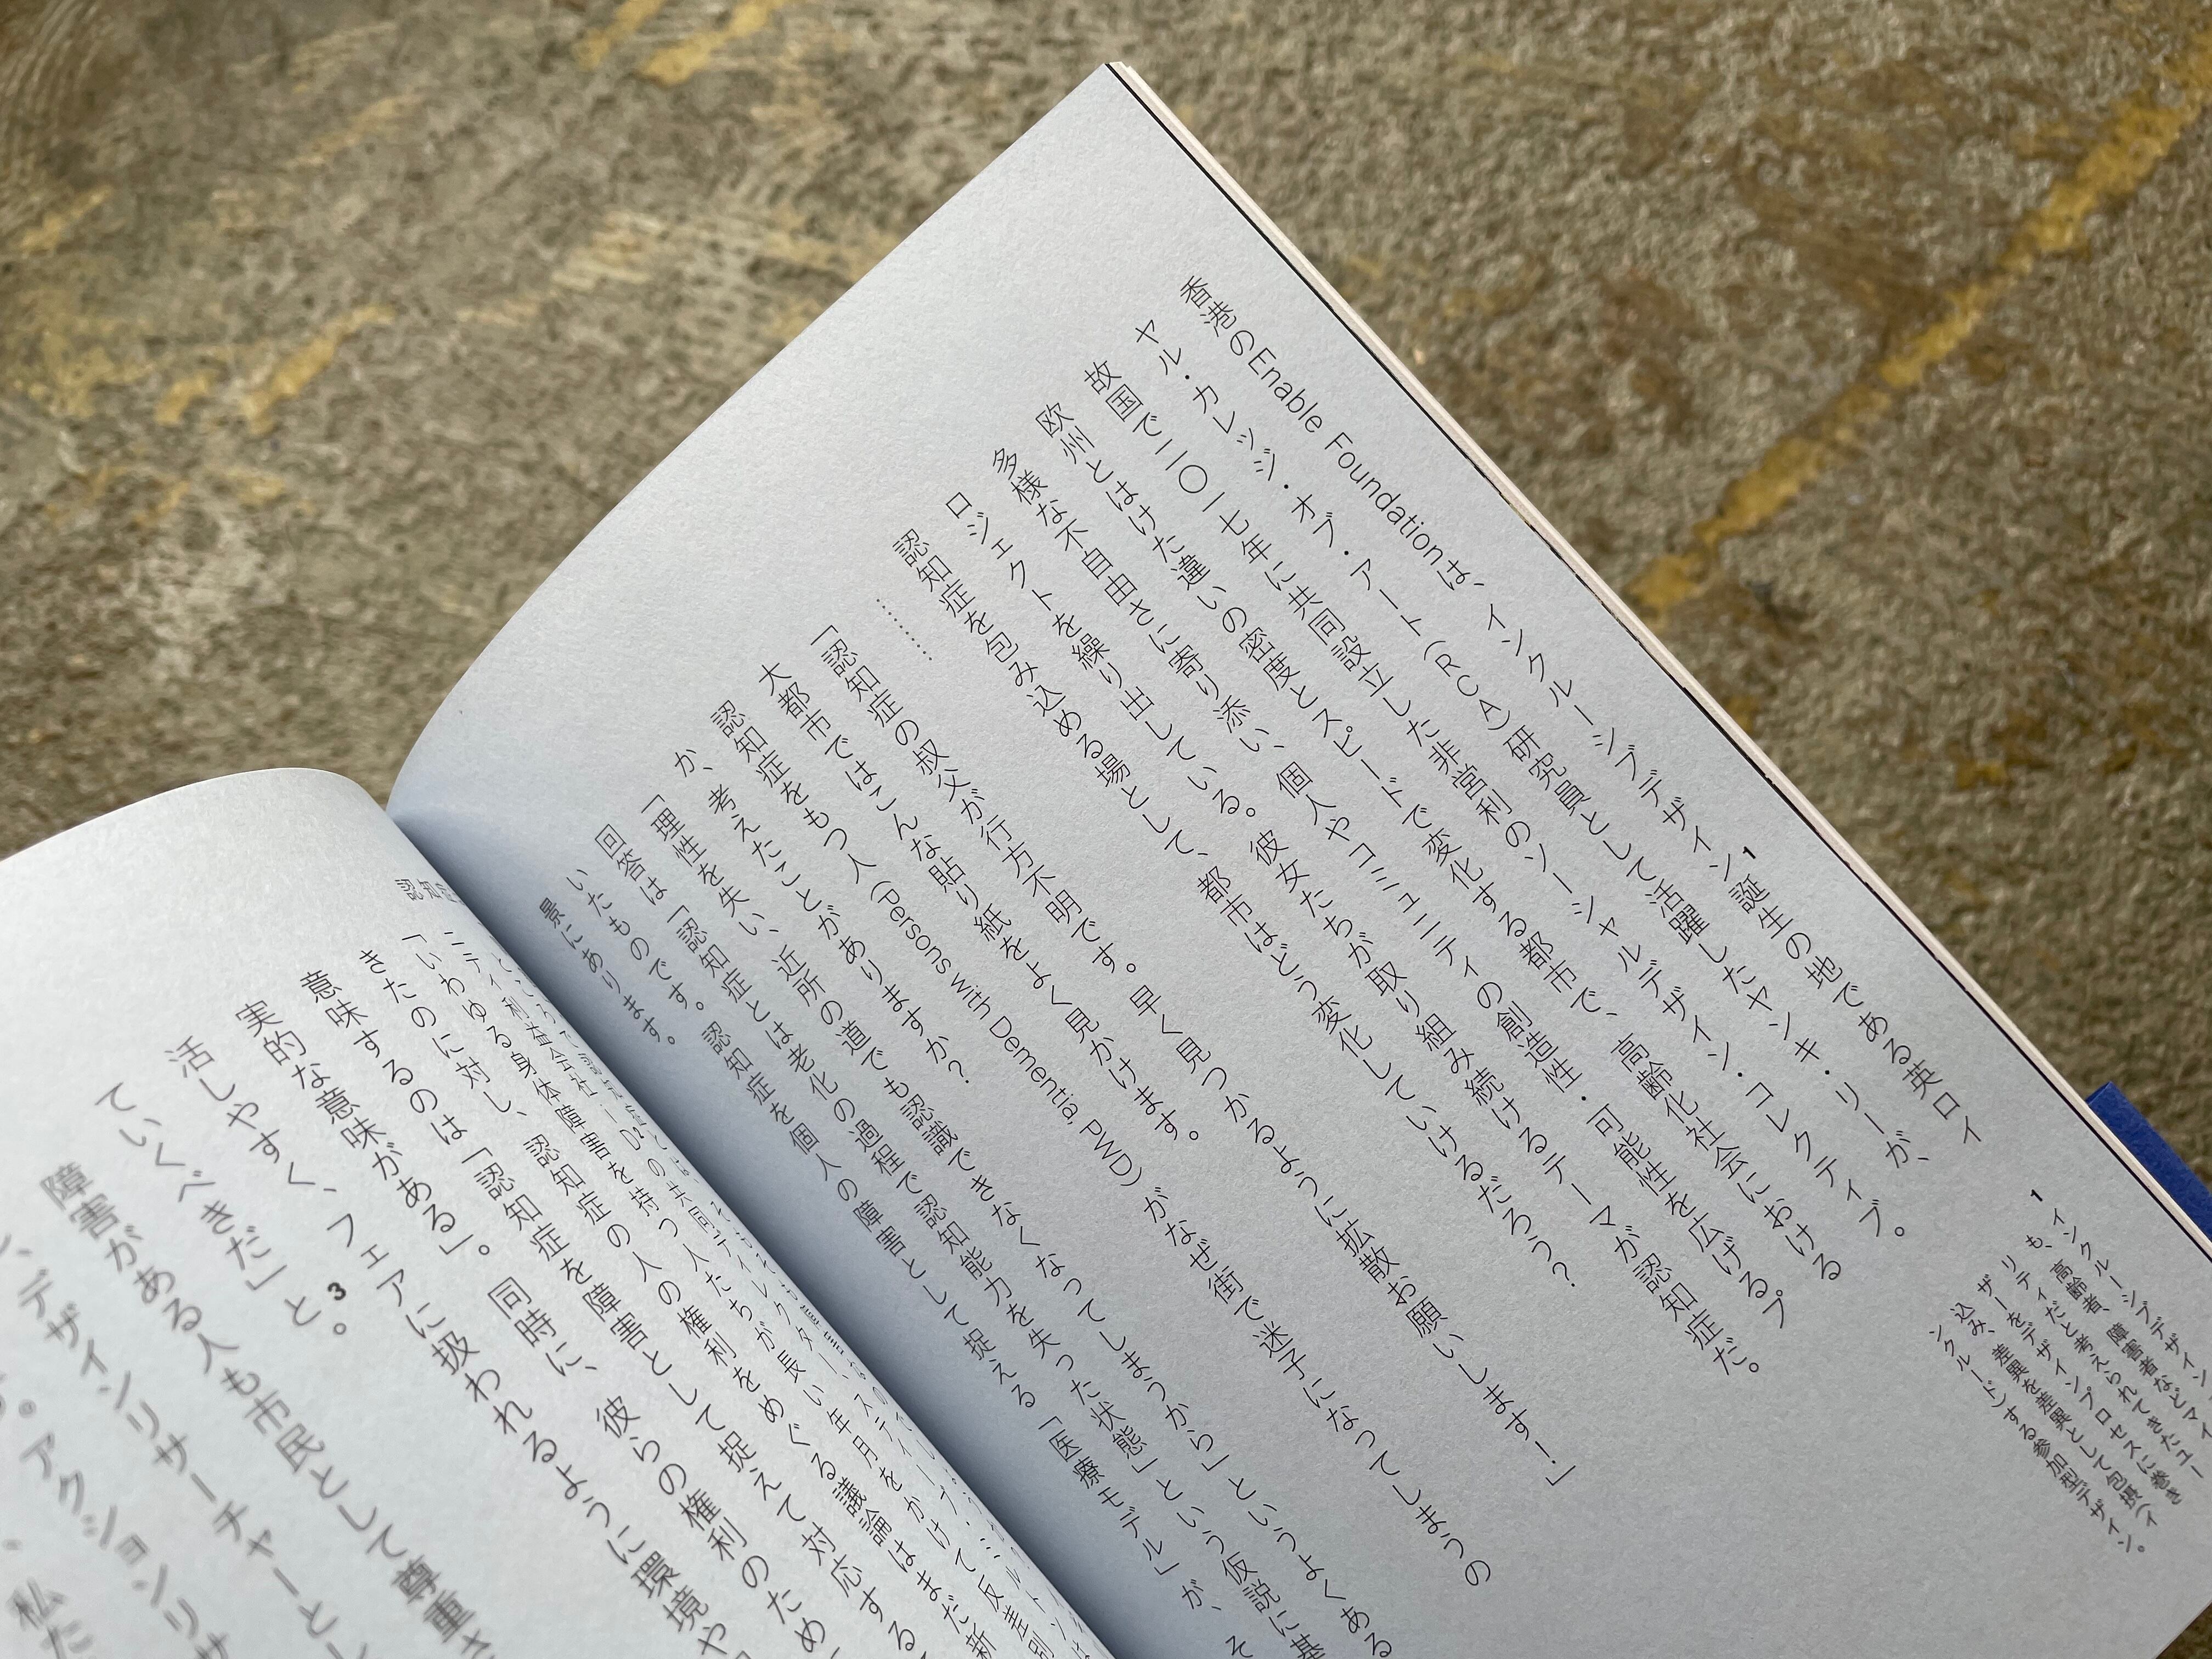 香港のEnable Foundationは、インクルーシブデザイン1誕生の地である英ロイ
ヤル・カレッジ・オブ・アート（RCA）研究員として活躍したヤンキ・リーが、
故国で二〇一七年に共同設立した非営利のソーシャルデザイン・コレクティブ。
欧州とはけた違いの密度とスピードで変化する都市で、高齢化社会における
多様な不自由さに寄り添い、個人やコミュニティの創造性・可能性を広げるプ
ロジェクトを繰り出している。彼女たちが取り組み続けるテーマが認知症だ。
認知症を包み込める場として、都市はどう変化していけるだろう？
………
「認知症の叔父が行方不明です。早く見つかるように拡散お願いします！」
大都市ではこんな貼り紙をよく見かけます。
認知症をもつ人（Persons with Dementia: PWD）がなぜ街で迷子になってしまうの
か、考えたことがありますか？
「理性を失い、近所の道でも認識できなくなってしまうから」というよくある
回答は「認知症とは老化の過程で認知能力を失った状態」という仮説に基
いたものです。認知症を個人の障害として捉える「医療モデル」が、そ
景にあります。
1 インクルーシブデザイン
も、高齢者、障害者などマイ
リティだと考えられてきたユー
ザーをデザインプロセスに巻き
込み、差異を差異として包摂（イ
ンクルード）する参加型デザイン。
認知症
「いわゆる身体障害を持つ人たちが長い年月をかけて反差別
きたのに対し、認知症の人の権利をめぐる議論はまだ新
意味するのは「認知症を障害として捉えて対応する
実的な意味がある」。同時に、彼らの権利のため
活しやすく、フェアに扱われるように環境や
ていくべきだ」と3。
障害がある人も市民として尊重さ
デザインリサーチャーとし
アクションリサ
私た